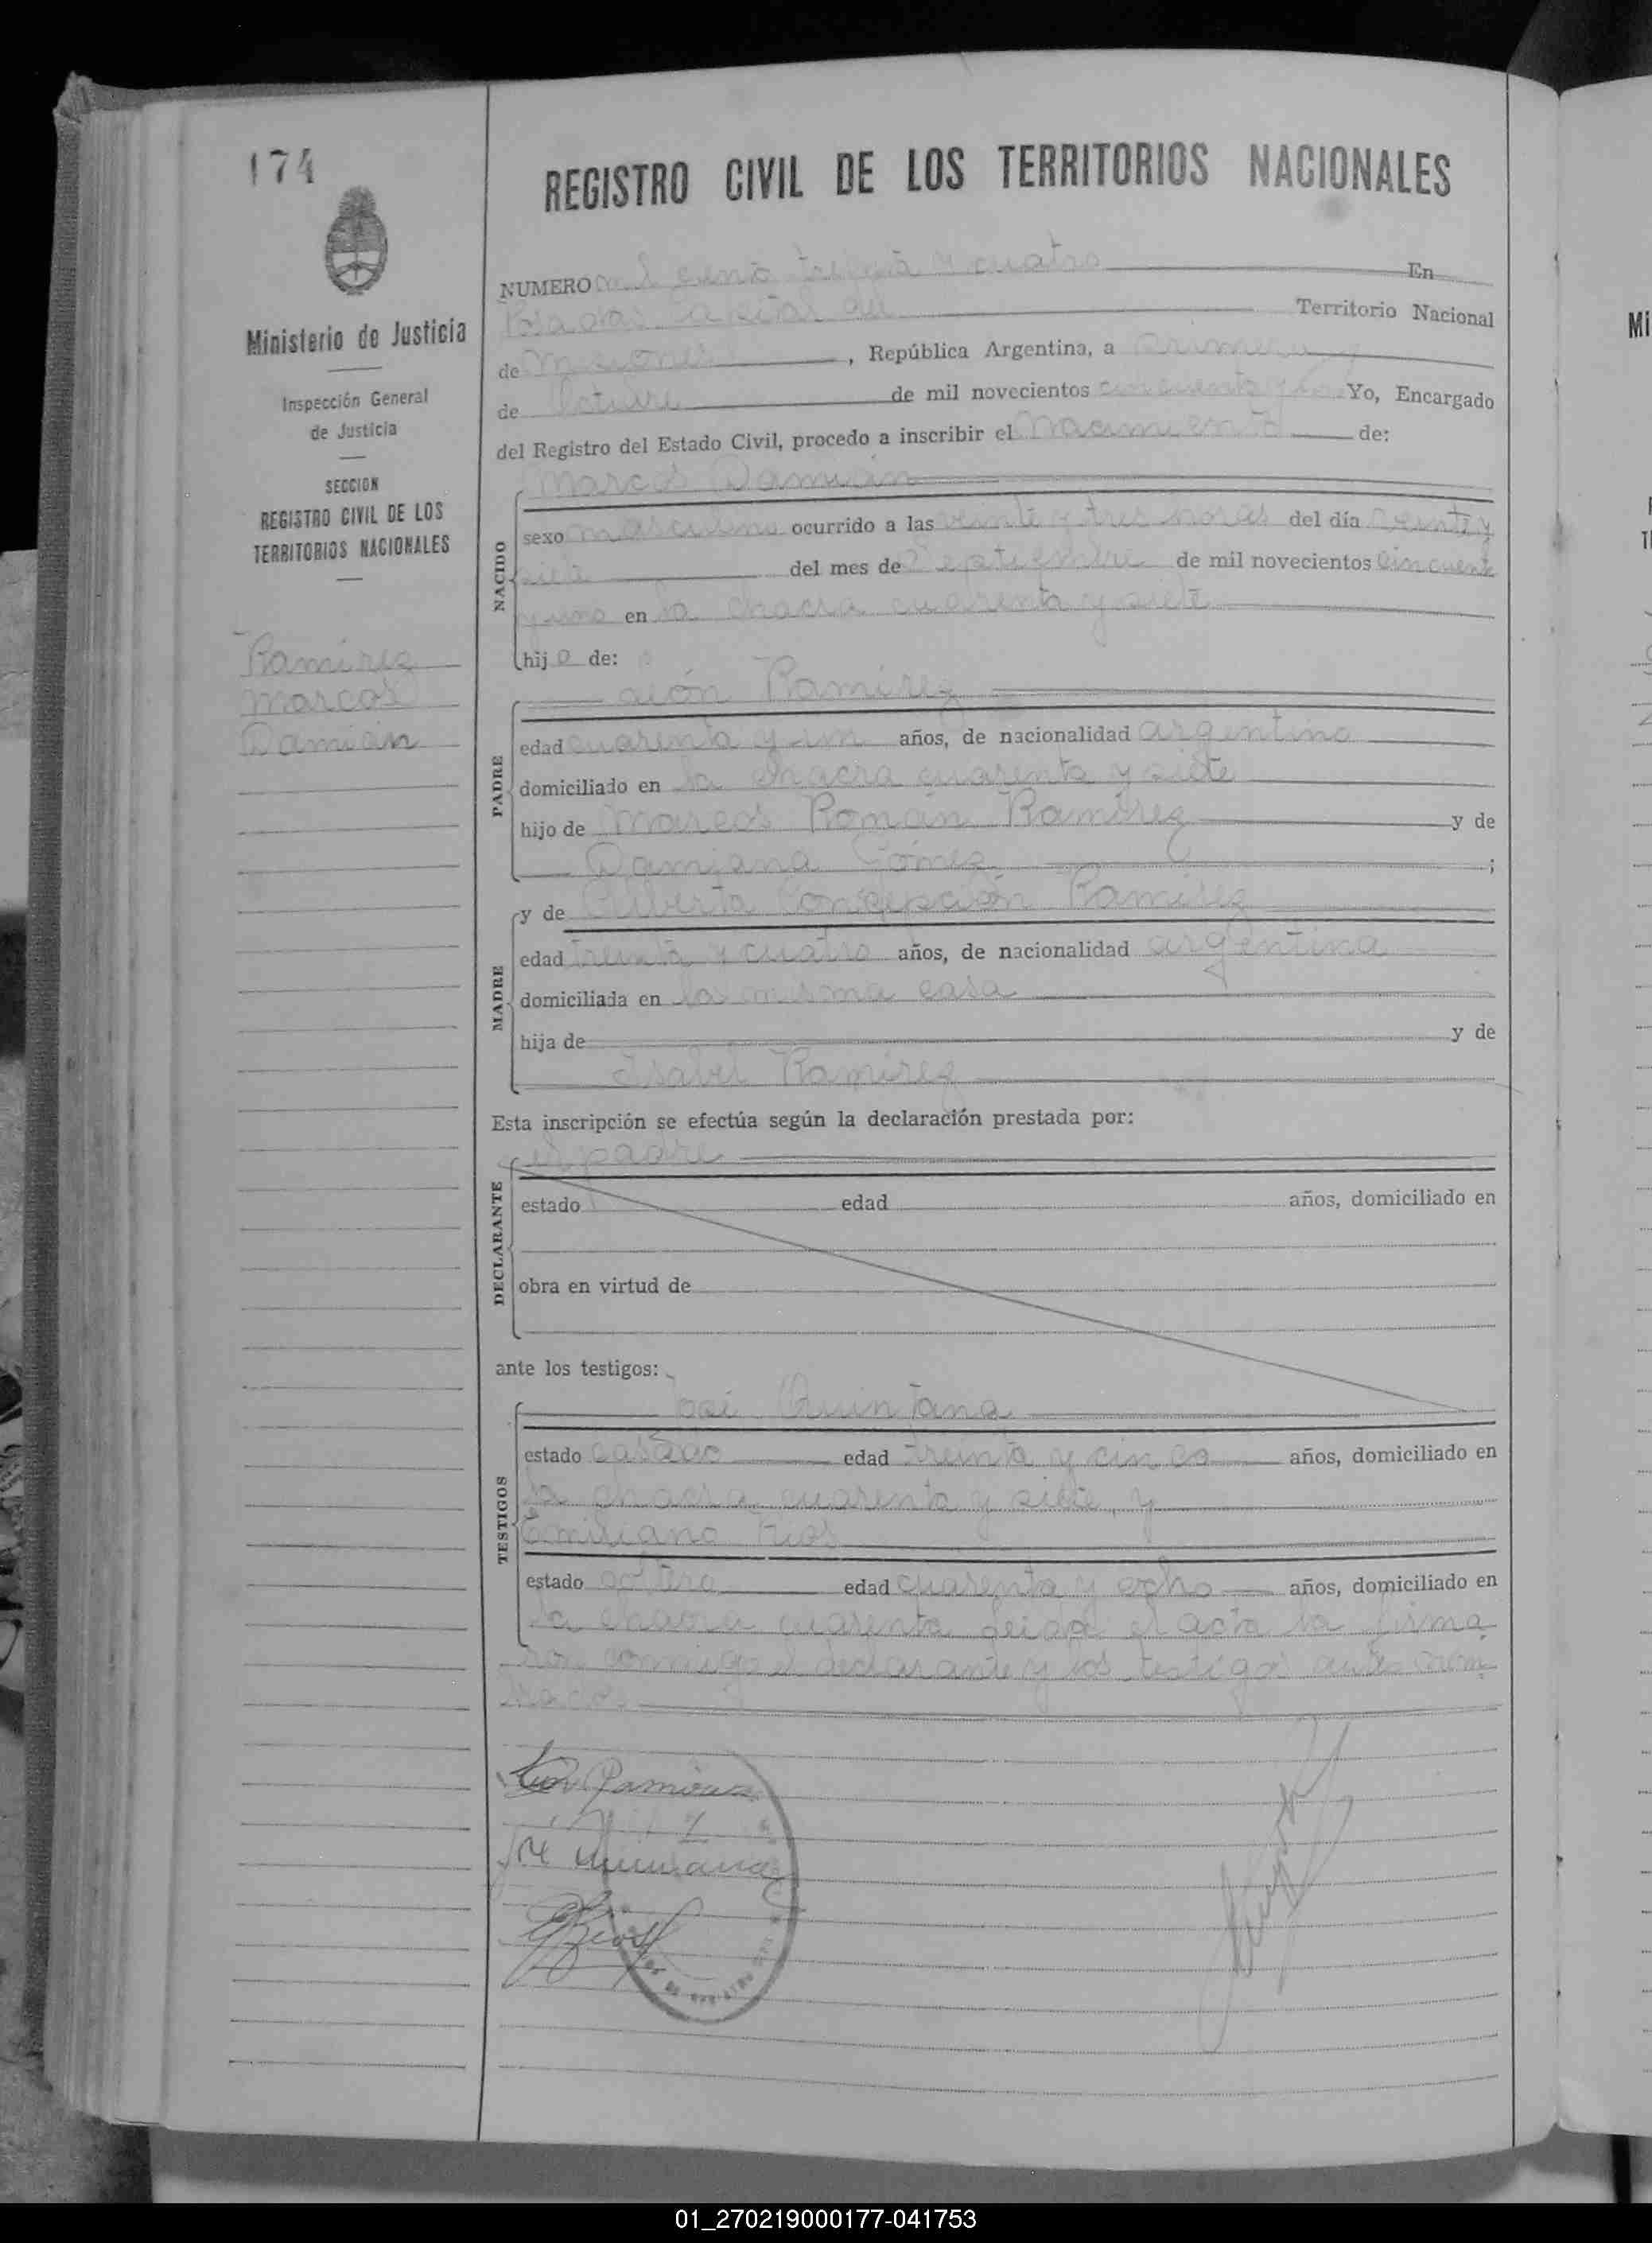 174
REGISTRO CIVIL DE LOS TERRITORIOS NACIONALES
Ministerio de Justicia
Inspección General
de Justicia
SECCION
REGISTRO CIVIL DE LOS
TERRITORIOS NACIONALES
Ramirez
Marcos
Damián
NUMERO mil ciento treinta y cuatro En
Posadas Capital del Territorio Nacional
de Misiones, República Argentina, a primero
de Octubre de mil novecientos cincuenta y uno Yo, Encargado
del Registro del Estado Civil, procedo a inscribir el Nacimiento de:
NACIDO
Marcos Damián
sexo masculino ocurrido a las veinte y tres horas del día veinte y
siete del mes de Septiembre de mil novecientos cincuenta
y uno en la chacra cuarenta y siete
hijo de:
PADRE
León Ramirez
edad cuarenta y un años, de nacionalidad argentino
domiciliado en la chacra cuarenta y siete
hijo de Marcos Román Ramirez y de
Damiana Gómez ;
MADRE
y de Gilberta Concepción Ramirez
edad treinta y cuatro años, de nacionalidad argentina
domiciliada en la misma casa
hija de y de
Isabel Ramirez
Esta inscripción se efectúa según la declaración prestada por:
DECLARANTE
el padre
estado edad años, domiciliado en
obra en virtud de
ante los testigos:
TESTIGOS
José Quintana
estado casado edad treinta y cinco años, domiciliado en
la chacra cuarenta y siete y
Emiliano Rios
estado soltero edad cuarenta y ocho años, domiciliado en
la chacra cuarenta leida el acta la firma
ron conmigo el declarante y los testigos ante nom
brados.
León Ramirez
José Quintana
E Rios
Mi
01_270219000177-041753